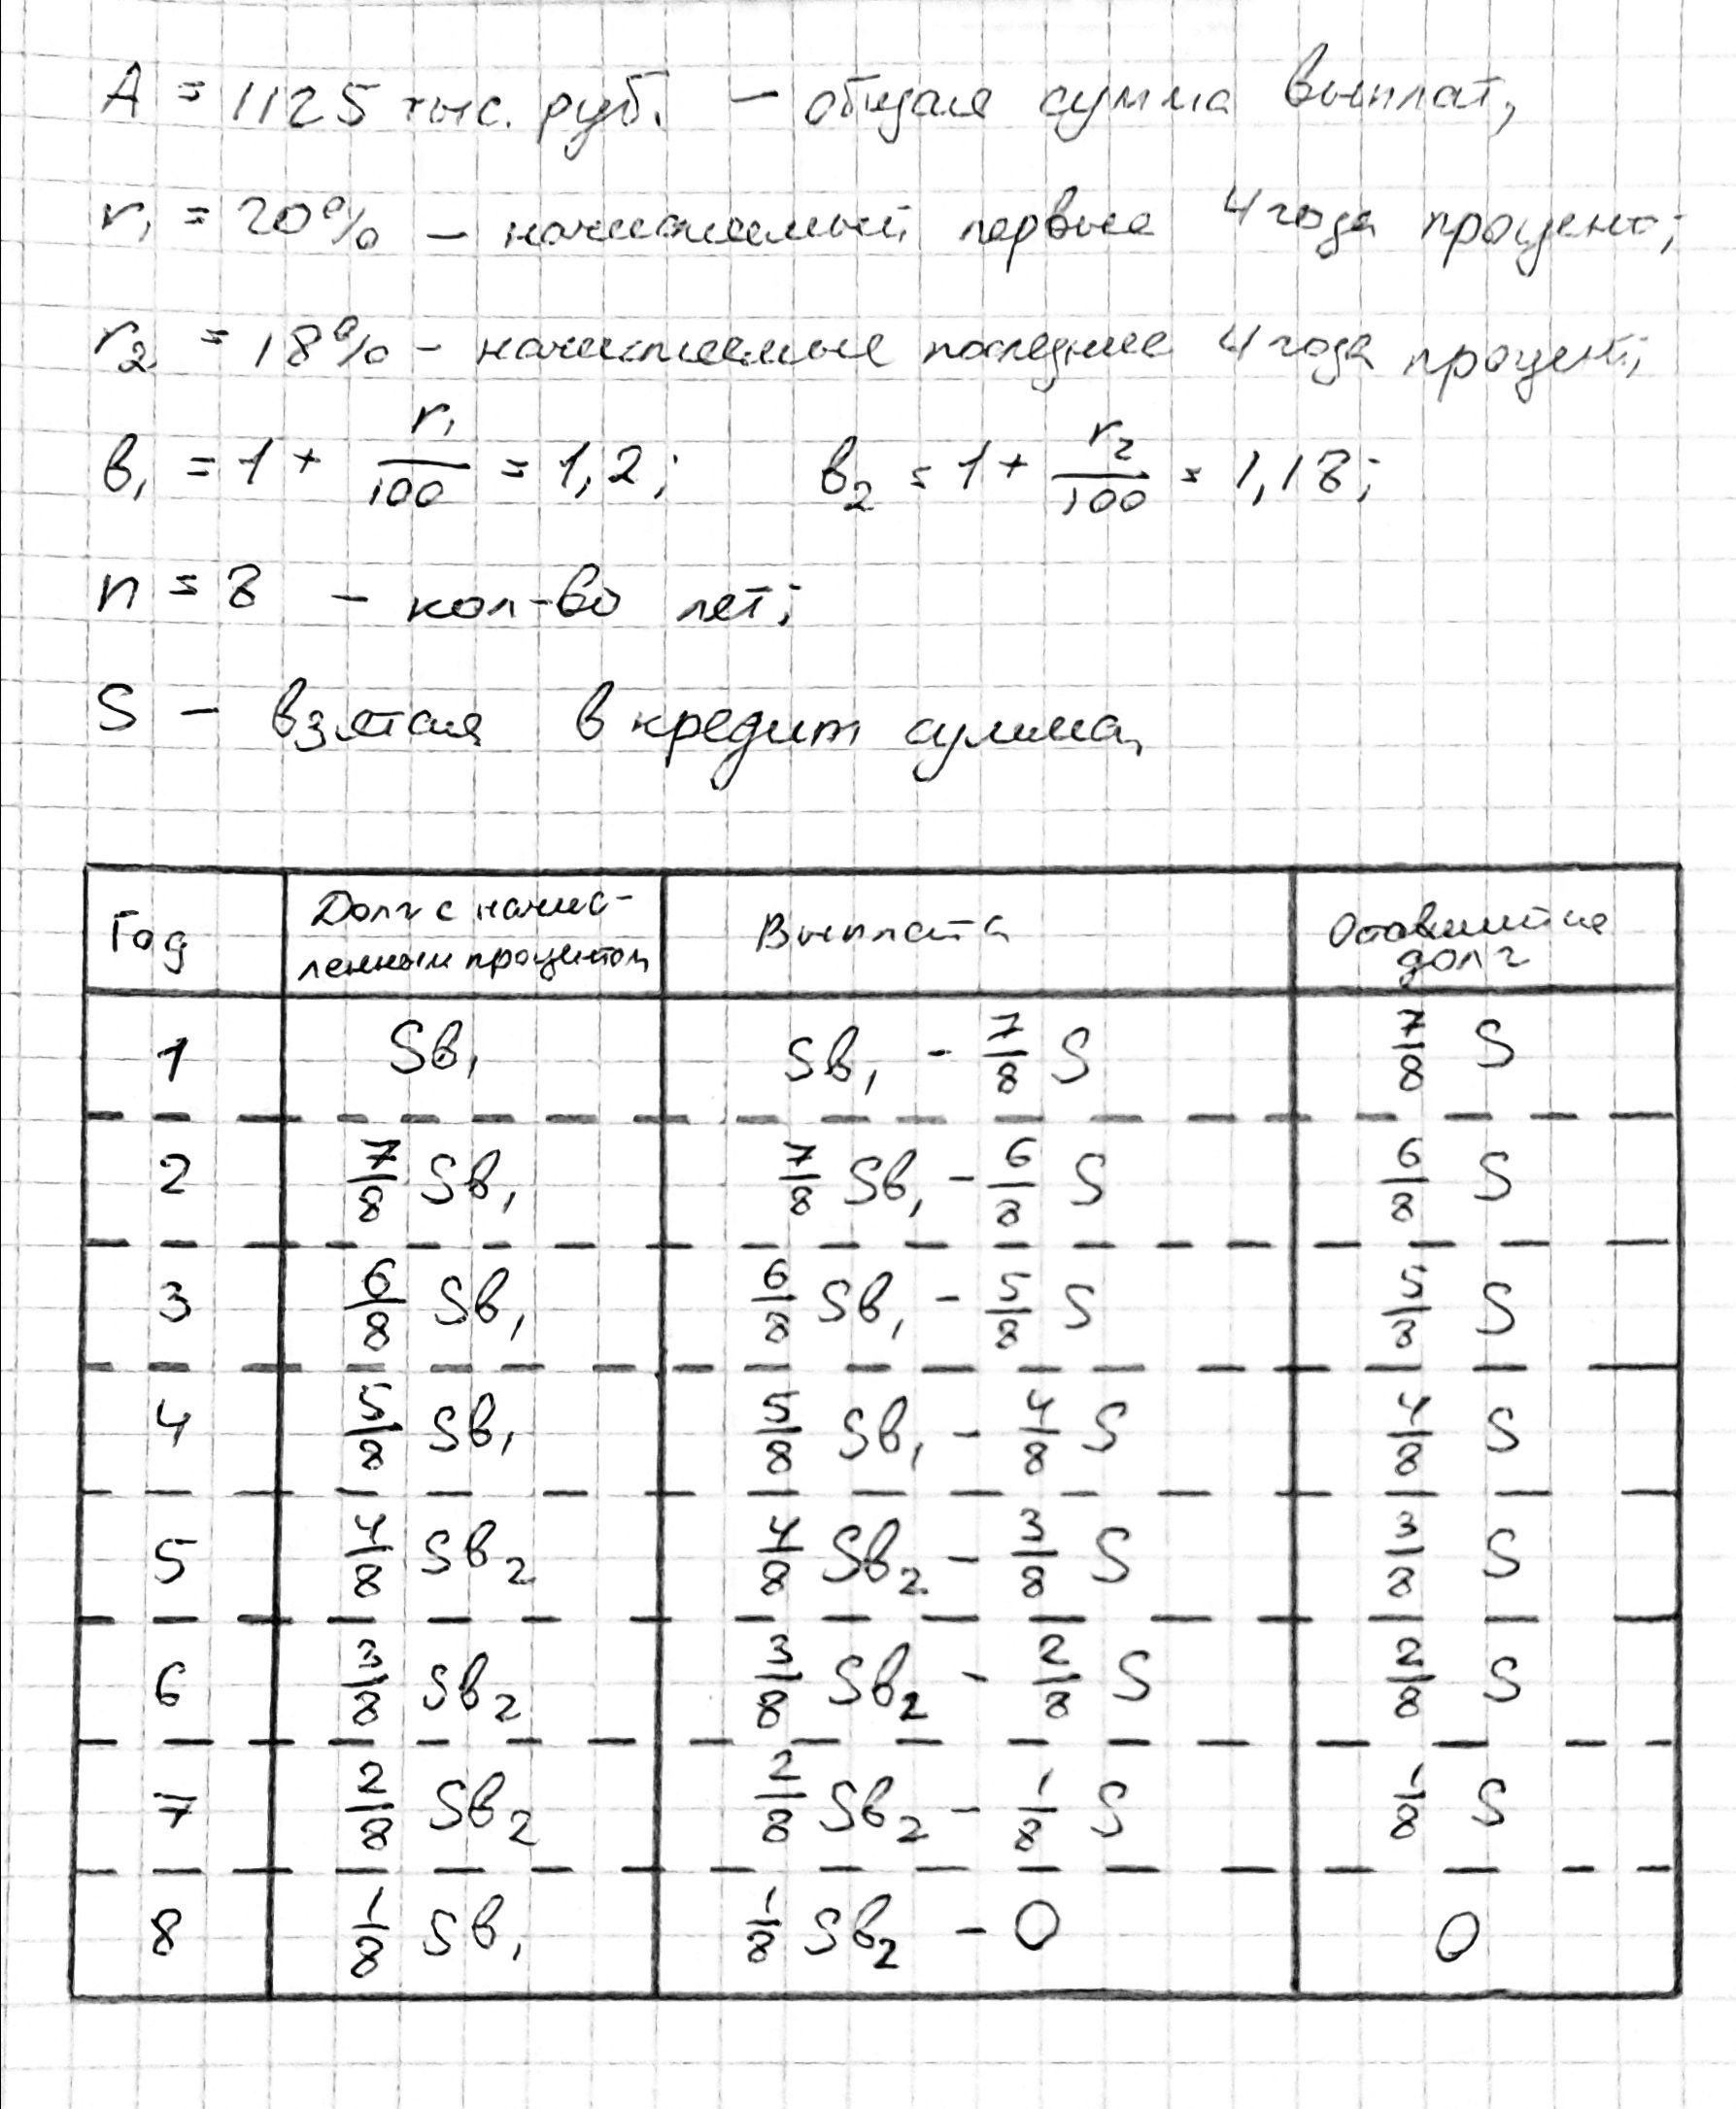 A = 1125 тыс. руб. – общая сумма выплат,
r₁ = 20% – начисляемый первые 4 года процент;
r₂ = 18% – начисляемые последние 4 года процент;
b₁ = 1 + r₁/100 = 1,2; b₂ = 1 + r₂/100 = 1,18;
n = 8 – кол-во лет;
S – взятая в кредит сумма,
Год | Долг с начис-ленным процентом | Выплата | Оставшийся долг
1 | Sb₁ | Sb₁ - 7/8 S | 7/8 S
2 | 7/8 Sb₁ | 7/8 Sb₁ - 6/8 S | 6/8 S
3 | 6/8 Sb₁ | 6/8 Sb₁ - 5/8 S | 5/8 S
4 | 5/8 Sb₁ | 5/8 Sb₁ - 4/8 S | 4/8 S
5 | 4/8 Sb₂ | 4/8 Sb₂ - 3/8 S | 3/8 S
6 | 3/8 Sb₂ | 3/8 Sb₂ - 2/8 S | 2/8 S
7 | 2/8 Sb₂ | 2/8 Sb₂ - 1/8 S | 1/8 S
8 | 1/8 Sb₁ | 1/8 Sb₂ - 0 | 0